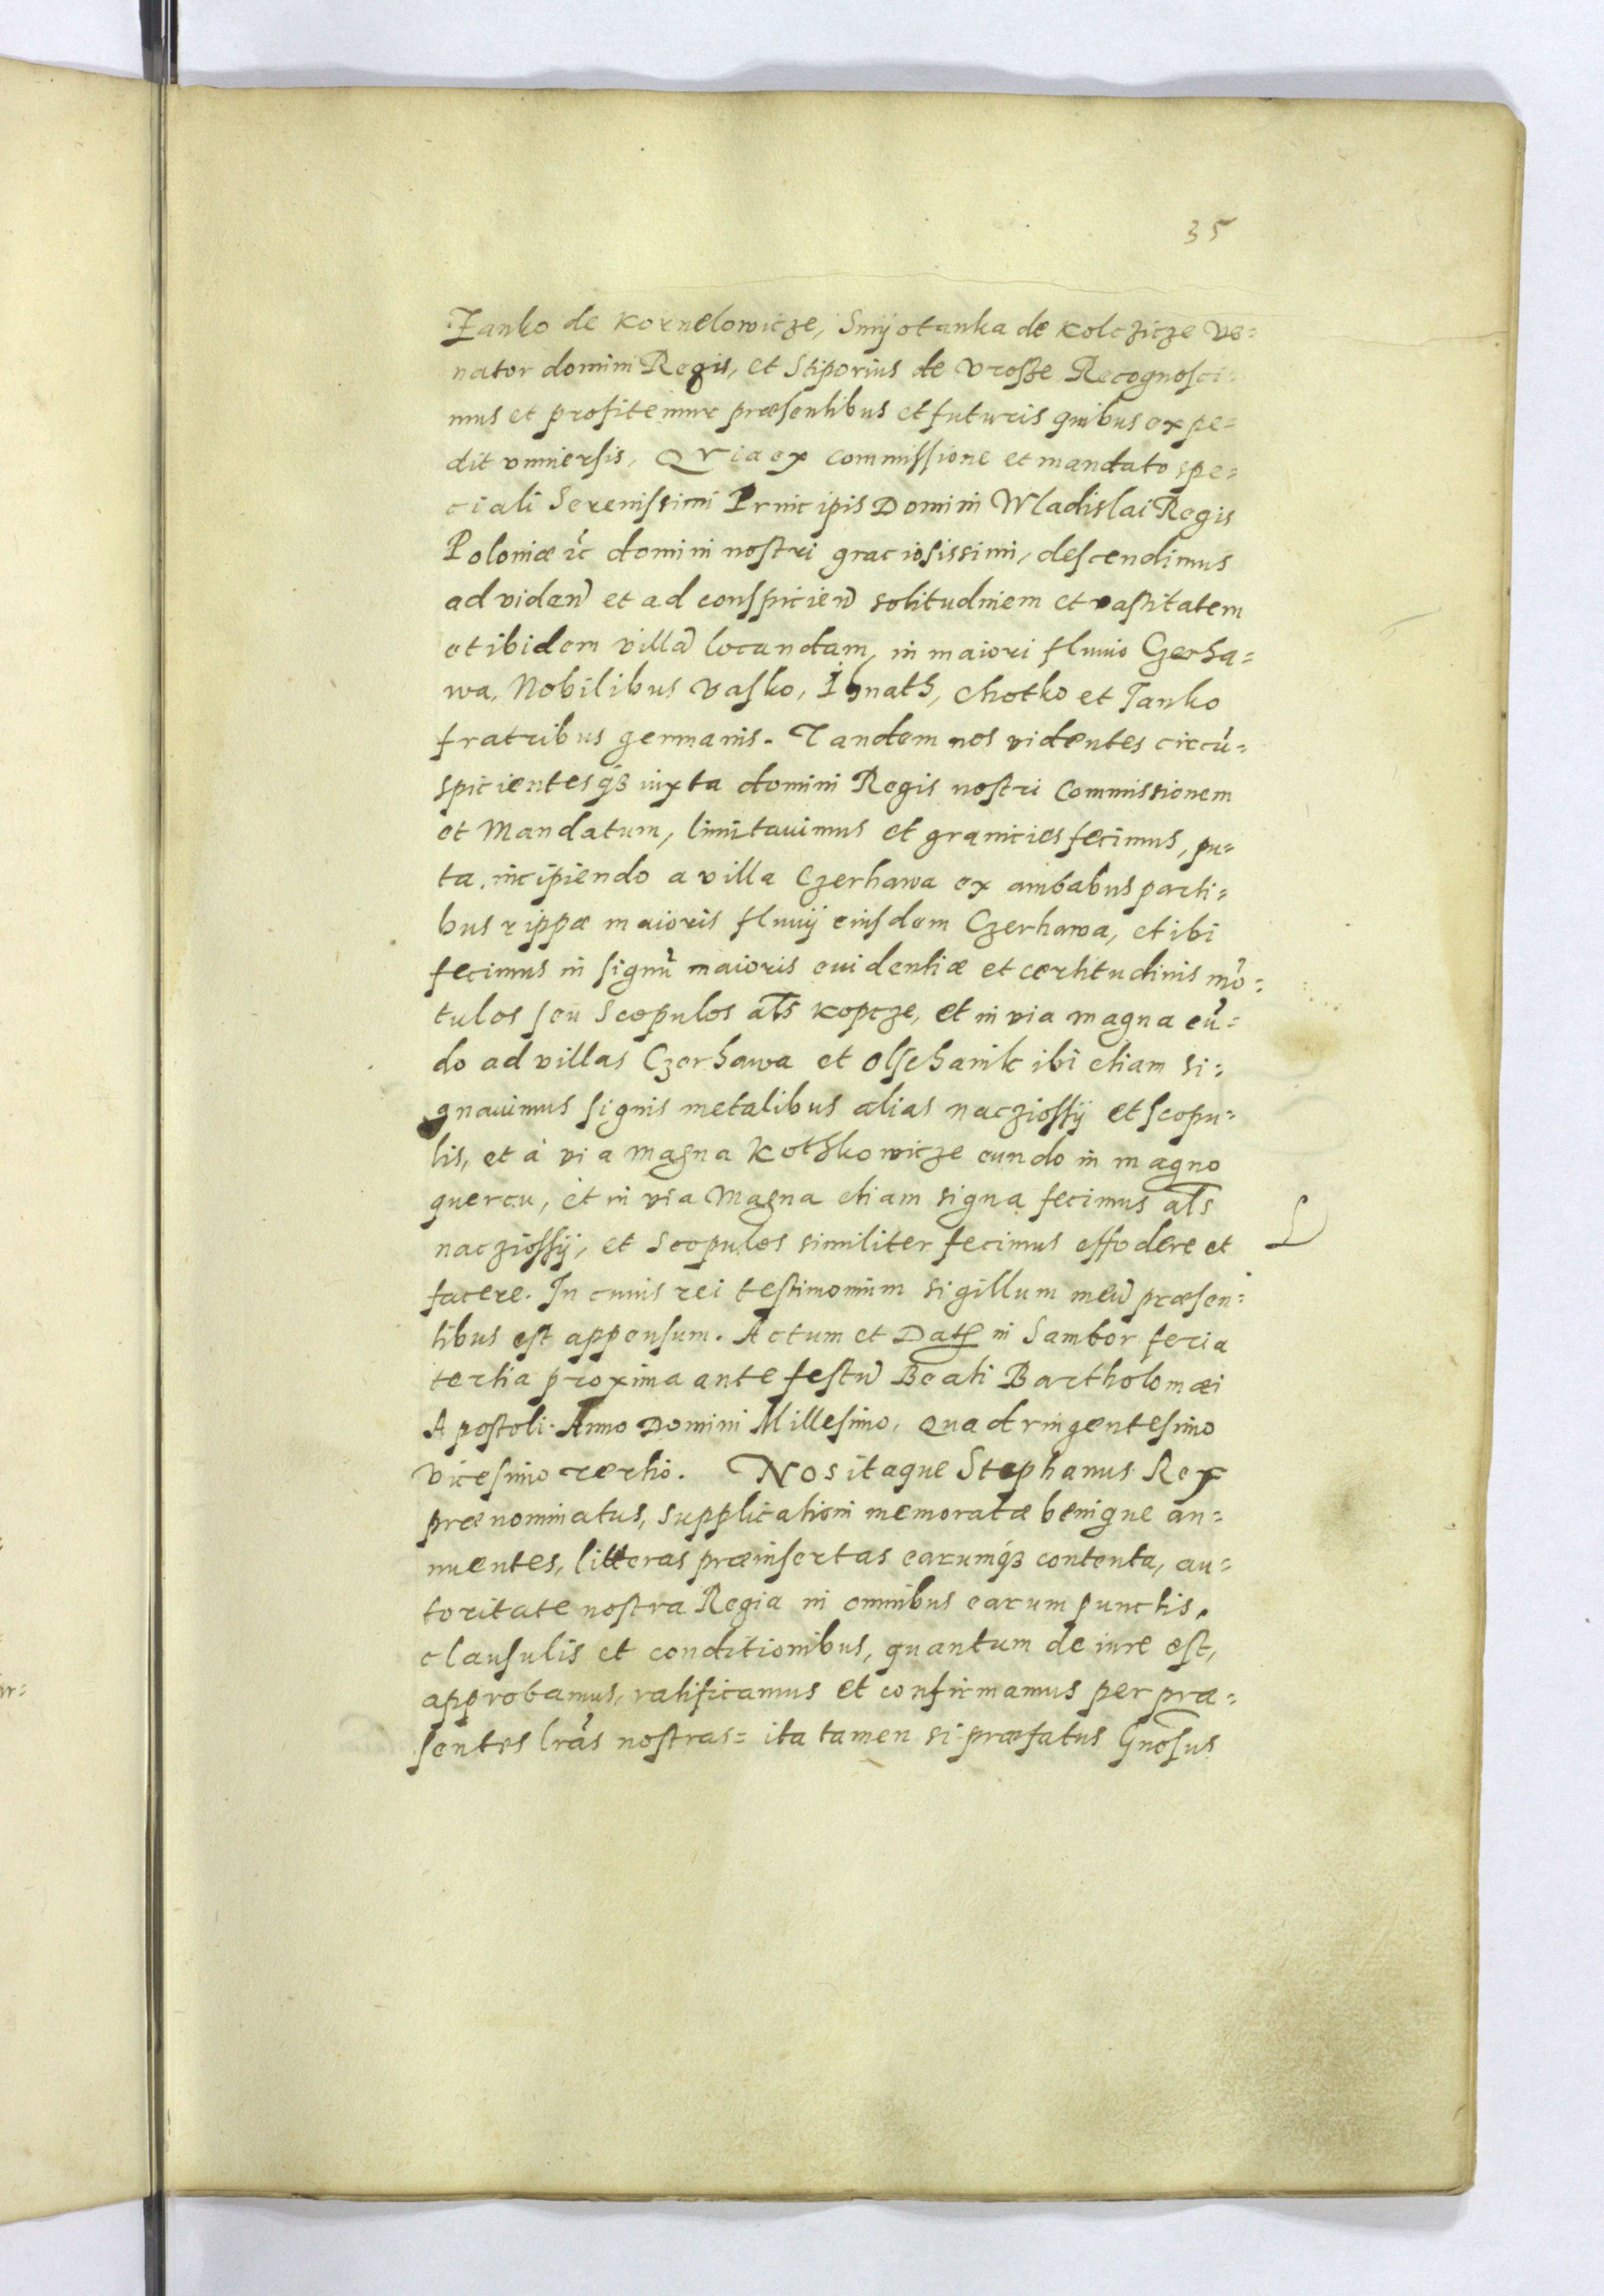 35
Ianko de Kornelowicze, Smijotanka de Kolczicze Ve=
nator domini Regis, et Stiporius de Vrosze Recognosci=
mus et profitemur præsentibus et futuris quibus expe=
dit vniuersis, Qvia ex commissione et mandato spe=
ciali Serenissimi Principis Domini Wladislai Regis
Poloniæ ꝛc̃ domini nostri graciosissimi, descendimus
ad vidend̃ et ad conspiciend̃ solitudinem et vastitatem
et ibidem villã locandam, in maiori fluuio Czerha=
wa, Nobilibus Vasko, Ihnath, Chotko et Janko
fratribus germanis. Tandem nos videntes circũ=
spicientesq́ꝫ iuxta domini Regis nostri Commissionem
et Mandatum, limitauimus et granicies fecimus, pu=
ta, incipiendo a villa Czerhawa ex ambabus parti=
bus rippæ maioris fluuij eiusdem Czerhawa, et ibi
fecimus in signũ maioris euidentiæ et certitudinis mõ=
tulos seu Scopulos al̃s kopcze, et in via magna eũ=
do ad villas Czerhawa et Olschanik ibi etiam si=
gnauimus signis metalibus alias nacziossij et scopu=
lis, et à via magna Kothkowicze eundo in magno
quercu, et in via Magna etiam signa fecimus al̃s
nacziossij, et Scopulos similiter fecimus effodere et
facere. In cuius rei testimonium sigillum meũ præsen=
tibus est appensum. Actum et Datꝭ in Sambor feria
tertia proxima ante festũ Beati Bartholomæi
Apostoli. Anno Domini Millesimo, Quadringentesimo
vicesimo tertio. Nos itaque Stephanus Rex
prænominatus, supplicationi memoratæ benigne an=
nuentes, litteras præinsertas earumq́ꝫ contenta, au=
toritate nostra Regia in omnibus earum punctis,
clausulis et conditionibus, quantum de iure est,
approbamus, ratificamus et confirmamus per præ=
sentes lr̃as nostras= ita tamen si præfatus Gnõsus